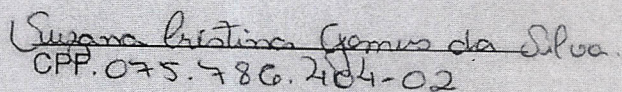 Suzana Cristina Gomes da Silva.
CPP. 075.786.404-02